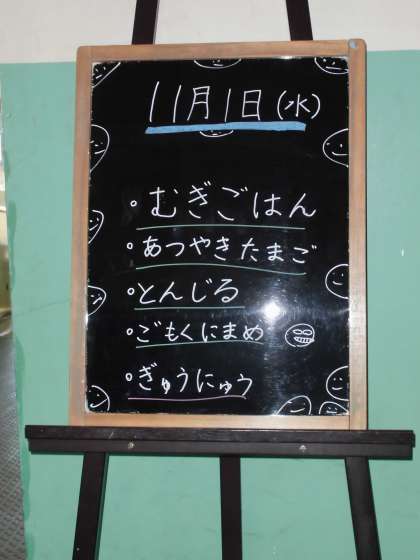 11月1日(水)
・むぎごはん
・あつやきたまご
・とんじる
・ごもくにまめ
・ぎゅうにゅう